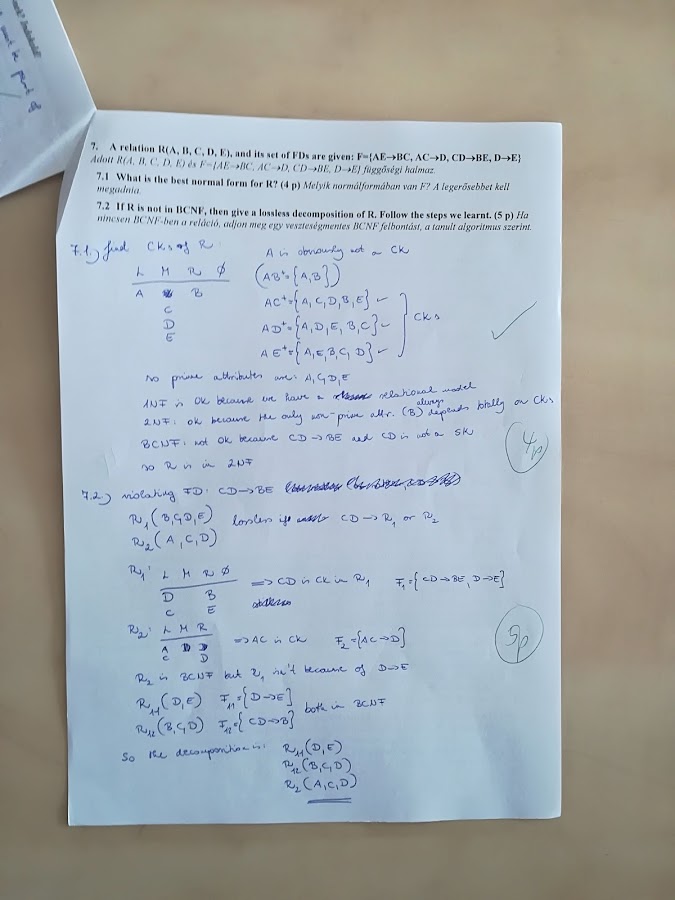 7. A relation R(A, B, C, D, E), and its set of FDs are given: F={AE→BC, AC→D, CD→BE, D→E}
Adott R(A, B, C, D, E) és F={AE→BC, AC→D, CD→BE, D→E} függőségi halmaz.
7.1 What is the best normal form for R? (4 p) Melyik normálformában van F? A legerősebbet kell
megadnia.
7.2 If R is not in BCNF, then give a lossless decomposition of R. Follow the steps we learnt. (5 p) Ha
nincsen BCNF-ben a reláció, adjon meg egy veszteségmentes BCNF felbontást, a tanult algoritmus szerint.
7.1.) find CKs of R: A is obviously not a CK
L M R Ø (AB⁺={A,B})
A B AC⁺={A,C,D,B,E} ✓
C AD⁺={A,D,E,B,C} ✓ CKs
D AE⁺={A,E,B,C,D} ✓
E
so prime attributes are: A,C,D,E
1NF is OK because we have a relational model
2NF: ok because the only non-prime attr. (B) always depends totally on CKs
BCNF: not OK because CD→BE and CD is not a SK
4p
so R is in 2NF
7.2.) violating FD: CD→BE
R₁(B,C,D,E) lossless if CD→R₁ or R₂
R₂(A,C,D)
R₁: L M R Ø ⇒ CD is CK in R₁ F₁={CD→BE, D→E}
D B
C E
R₂: L M R ⇒ AC is CK F₂={AC→D]
A D
C
5p
R₂ is BCNF but R₁ isn't because of D→E
R₁₁(D,E) F₁₁={D→E] both in BCNF
R₁₂(B,C,D) F₁₂={CD→B}
So the decomposition is: R₁₁(D,E)
R₁₂(B,C,D)
R₂(A,C,D)